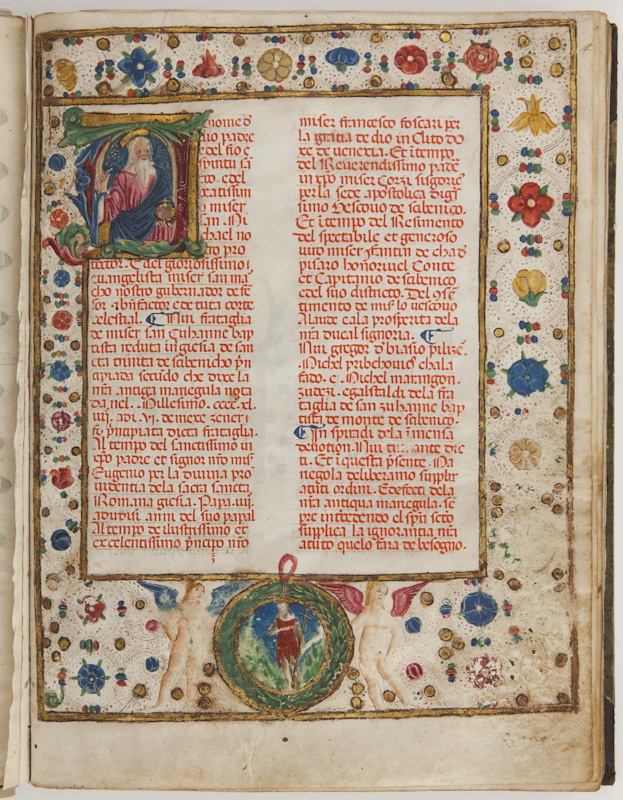 nome d
suo padre
e del fio e
spiritu sa
to. e del
beatissim
o miser
san. Mi
chael no
sto pro
tector. E del gloriosissimo i
euangelista miser san ma
cho nostro gubernator defe
sor. e bnfactor e de tuta corte
celestial. Nui frataglia
de miser san Cuhanne bap
tista reduta in giesia de san
cta trinita de sibenicho pin
cipiada secundo che dixe la
nra antiga mariegula nota
da nel. Millesimo. cccc. xl.
viii. adi. vi. de mexe zener
fo principiata dicta frataglia.
Al tempo del sanctissimo in
xpo padre et signor nro mis
Eugenio per la diuina pro
uidentia dela sacra sancta
Romana giesia. Papa iiii.
adi anni del suo papa
Al tempo de ilustrissimo et
excelentissimo principo nro
miser francesco foscari per
la gratia de dio inclito do
xe de uenexia. Et i tempo
del Reuerendissimo padre
in xpo miser Corzi sugorich
per la sede apostolica dig
simo Uescouo de sibenico.
Et i tempo del Resimento
del spectibile et generoso
uiro miser fantin de cha d
pisaro honoriuel Conte
et Capitanio de sibenico
e del suo distrecto. Del con
sentimento de mis lo uescouo
A laude e a la prosperita dela
nra ducal signoria. E
Nui gregor d biasio
Michel pribchouich chala
fado. e. Michel marangon.
zudexi. e gastaldi de la fra
taglia de san zuhanne bap
tista de monte de sibenico.
E In spiradi de la imensa
deuotion. Nui ante dic
ti. Et i questa psente. Ma
riegola deliberamo supplir
a tuti ordini. E defecti dela
nra antiqua mariegula. se
pre intendendo el spiri scto
supplica la ignorantia nra
a tuto quelo fara de besogno.